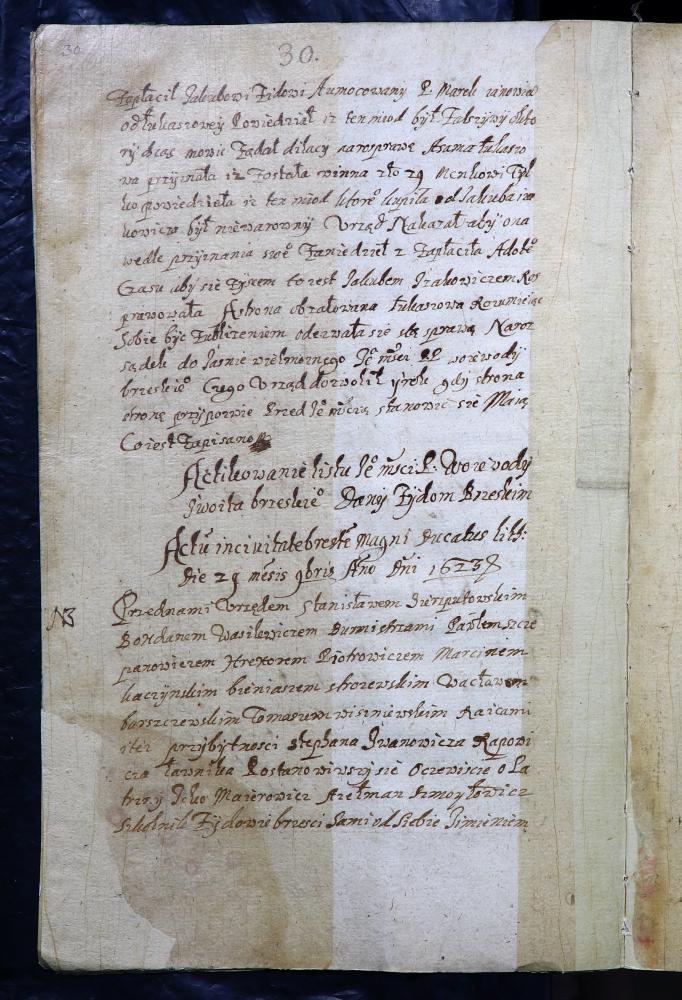 30
30.
Zapłacił Jakubowi Zidowi Aumocowany P. Marek ianowicz
od łukaszowey Powiedział iz ten miod był Fałszywy o kto
ry chcąc mowic Ządał dilacy narosprawę Asama łukaszo
wa przyznała iz Została winna zło 29 Menkowi Tyl
ko powiedziała iz ten miod ktore° kupiła od Jakuba iza
kowicza był niewarowny Vrząd Nakazał aby ona
wedle przyznania swe° Zaniedziel 2 Zapłaciła Adote°
Czasu aby sie Zysem to iest Jakubem Izakowiczem Ros
prawowała Astrona obzałowana łukaszowa Rozumieiąc
Sobie byc Zubliżeniem ode zwała sie stą sprawą Naroz
sądek do Jasnie wielmożnego Je° msci PP woiewody
brzeskie° Czego Vrząd dozwolił y rok gdy strona
stronę przypozwie Przed Je° mścią stanowic sie Maią
Co iest Zapisano
Actikowanie listu Je° msci P. Woiewody
Iwoita brzeskie° Dany Zydom Brzeskim
Actu in ciuitate breste magni Ducatus litt:
die 29 mēsis 9bris Āno Dni 1623
N3
Przed nami Vrzędem Stanisławem
Bohdanem Wasilewiczem Burmistrzami Pawłem szcze
panowiczem Hrehorem Piotrowiczem Marcinem
kaczynskim bieniaszem strozewskim Wacławem
barszczewskim Tomaszem wisniewskim Raicami
itez przybytnosci Stephana Iwanowicza Kapowi
cza ławnika Postanowiwszy sie Oczewiscie
Icko Maierowicz Zelman Szmoyłowicz
szkolnik Zydowie brzesci sami od Siebie Jimieniem